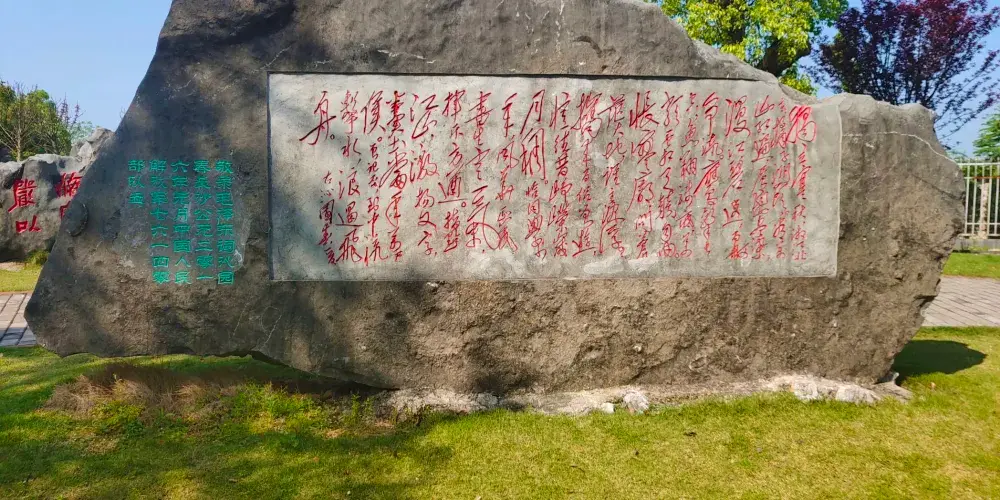 獨立寒秋湘江北
去橘子洲头看万
山红遍层林尽染
漫江碧透百
舸争流鹰击长
空鱼翔浅底万
类霜天竞自由
悵寥廓問蒼
茫大地谁主沉浮
携来百侣曾游
忆往昔峥嵘岁
月稠恰同学少
年风华正茂
書生意氣
揮斥方遒指點
江山激揚文字
糞土當年万户
侯曾记否到中流
擊水浪遏飛
舟
敬录毛泽东沁园
春長沙公元二零一
六年 月中国人民
解放军七六一四
部队立
嚴以